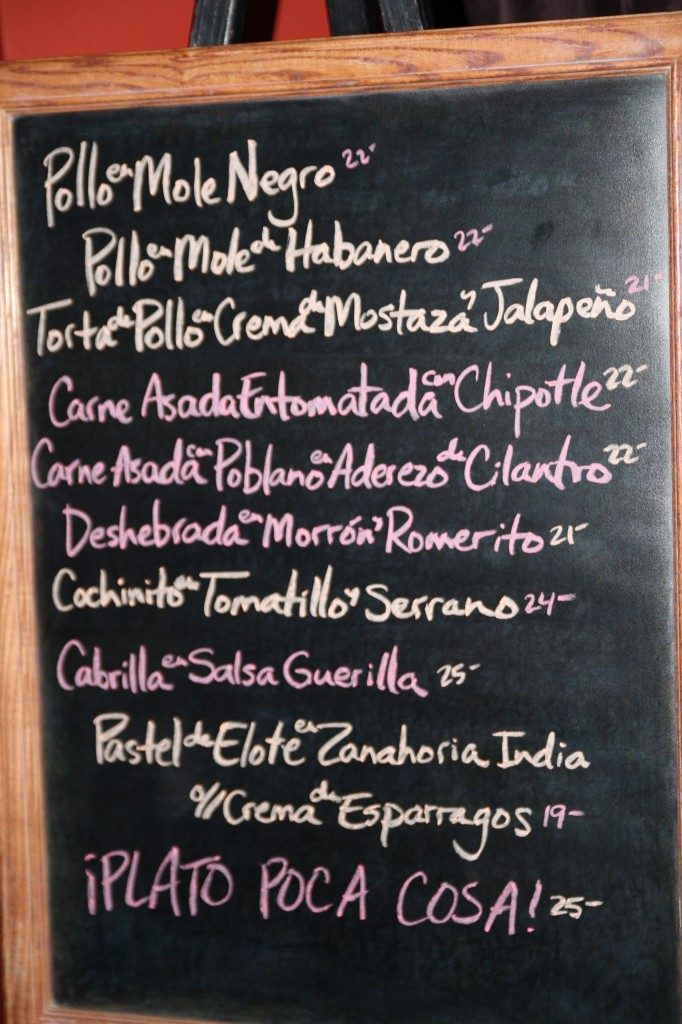 Pollo en Mole Negro 22-
Pollo en Mole de Habanero 22-
Torta de Pollo en Crema de Mostaza y Jalapeño 21-
Carne Asada Entomatada con Chipotle 22-
Carne Asada con Poblano en Aderezo de Cilantro 22-
Deshebrada en Morrón y Romerito 21-
Cochinito en Tomatillo y Serrano 24-
Cabrilla en Salsa Guerilla 25-
Pastel de Elote en Zanahoria India
o// Crema de Esparragos 19-
¡PLATO POCA COSA! 25-